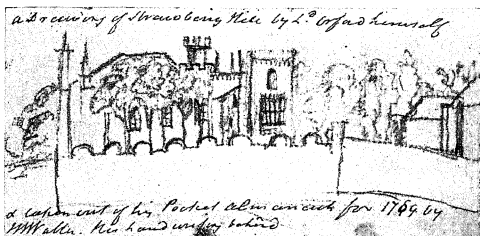 a Drawing of Strawberry Hill by Ld Orford himself
& taken out of his Pocket Almanack for 1769 by
Waller. His hand writing behind.